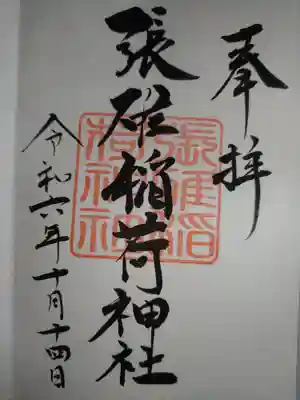 奉拝
張碓稲荷神社
令和六年十月十四日
張碓稲
荷神社